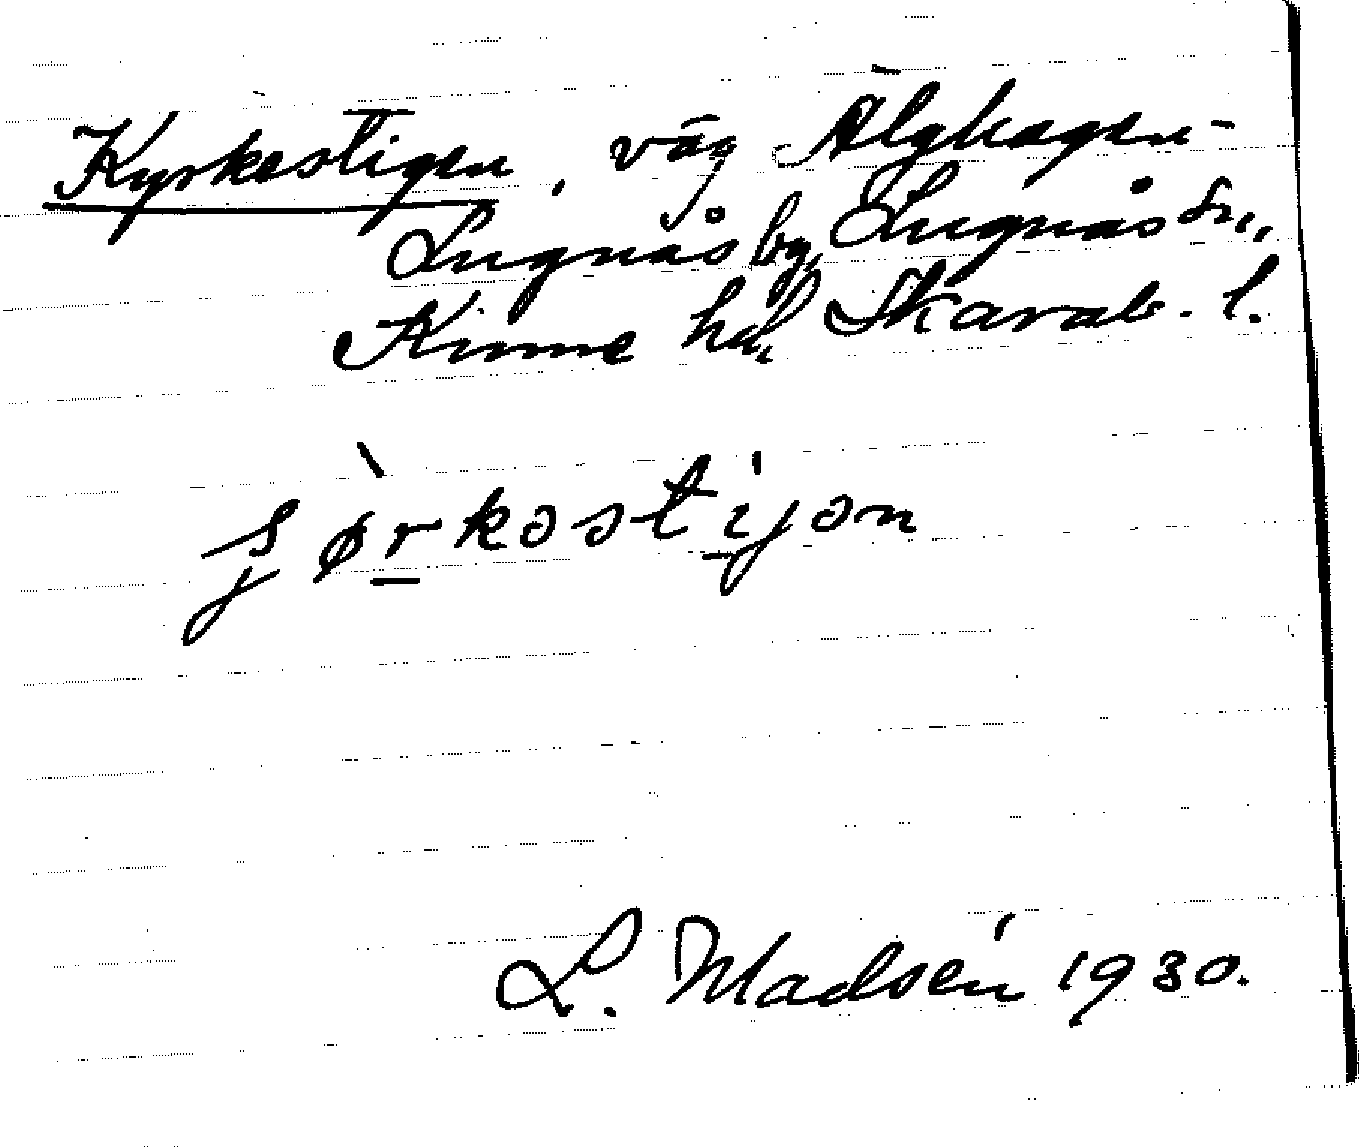 Kyrkestigen, väg Älghagen-
Lugnås by, Lugnås sn.,
Kinne hd, Skarab. l.
ʂørkəstijən
L. Madsén 1930.